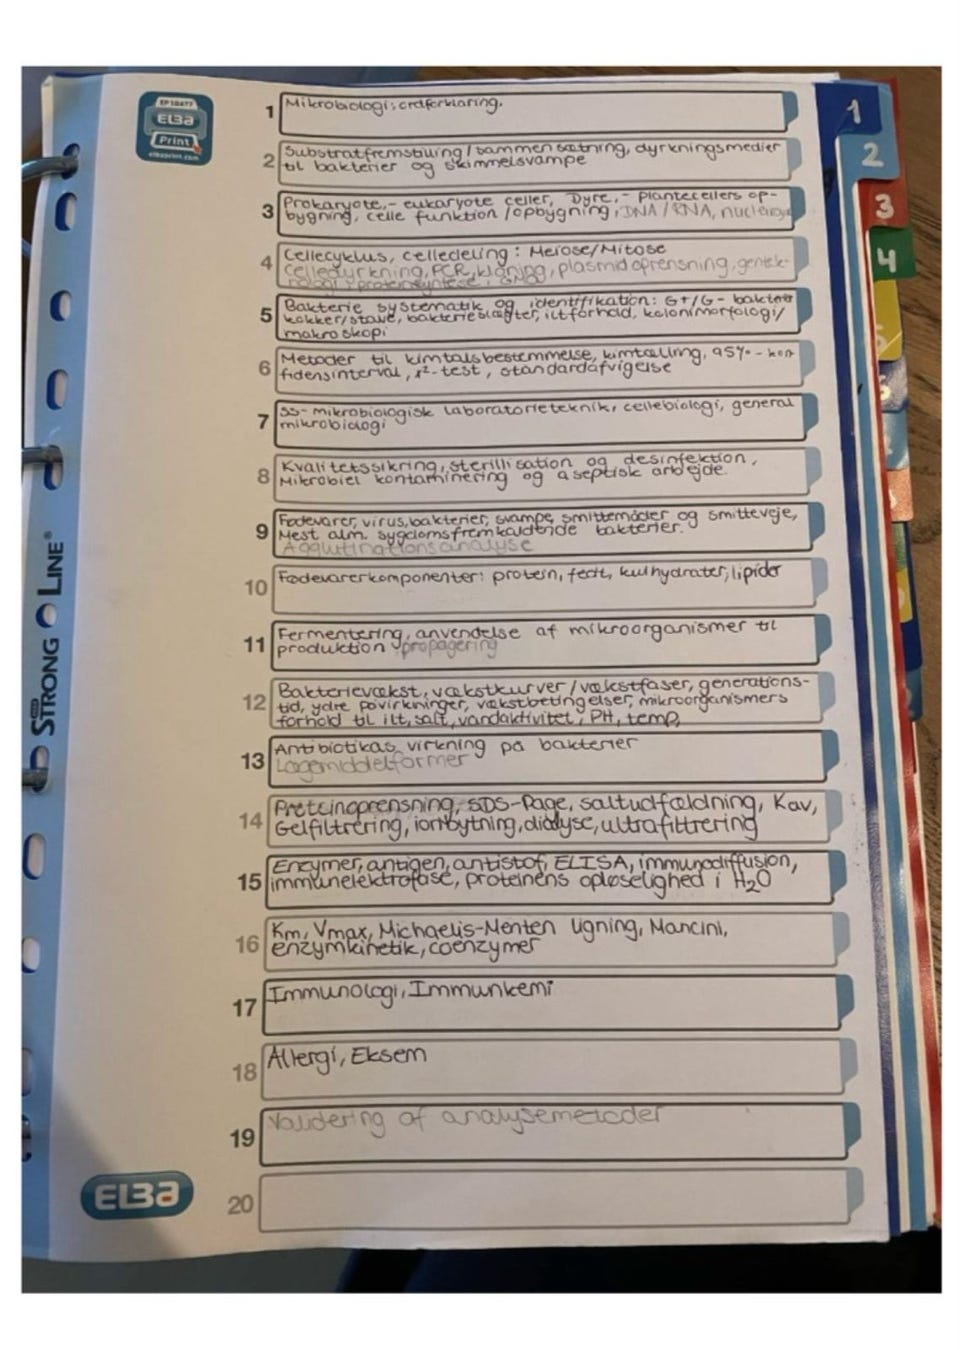 EP10477
ELBA
Print
elbaprint.com
STRONG LINE®
1 Mikrobiologi: ordforklaring.
2 Substratfremstilling/sammensætning, dyrkningsmedier
til bakterier og skimmelsvampe
3 Prokaryote,- eukaryote celler, Dyre,- plantecellers op-
bygning, celle funktion/opbygning, DNA/RNA,
4 Cellecyklus, celledeling: Meiose/Mitose
Celledyrkning, PCR, kloning, plasmidoprensning, gentek-
nologi, proteinsyntese, GMO
5 Bakterie systematik og identifikation: G+/G- bakterier
kokker/stave, bakterieslægter, iltforhold, kolonimorfologi/
makroskopi
6 Metoder til kimtalsbestemmelse, kimtælling, 95%-kon
fidensinterval, x²-test, standardafvigelse
7 SS-mikrobiologisk laboratorieteknik, cellebiologi, general
mikrobiologi
8 Kvalitetssikring, sterillisation og desinfektion,
Mikrobiel kontaminering og aseptisk arbejde.
9 Fødevarer, virus, bakterier, svampe, smittemåder og smitteveje,
Mest alm. sygdomsfremkaldende bakterier.
Agglutinationsanalyse
10 Fødevarerkomponenter: protein, fedt, kulhydrater, lipider
11 Fermentering, anvendelse af mikroorganismer til
produktion, propagering
12 Bakterievækst, vækstkurver/vækstfaser, generations-
tid, ydre påvirkninger, vækstbetingelser, mikroorganismers
forhold til ilt, salt, vandaktivitet, PH, temp,
13 Antibiotikas virkning på bakterier
Lægemiddelformer
14 Proteinoprensning, SDS-Page, saltudfældning, Kav,
Gelfiltrering, ionbytning, dialyse, ultrafiltrering
15 Enzymer, antigen, antistof, ELISA, immunodiffusion,
immunelektrofose, proteinens opløselighed i H₂O
16 Km, Vmax, Michaelis-Menten ligning, Mancini,
enzymkinetik, coenzymer
17 Immunologi, Immunkemi
18 Allergi, Eksem
19 Validering af analysemetoder
20
ELBA
1
2
3
4